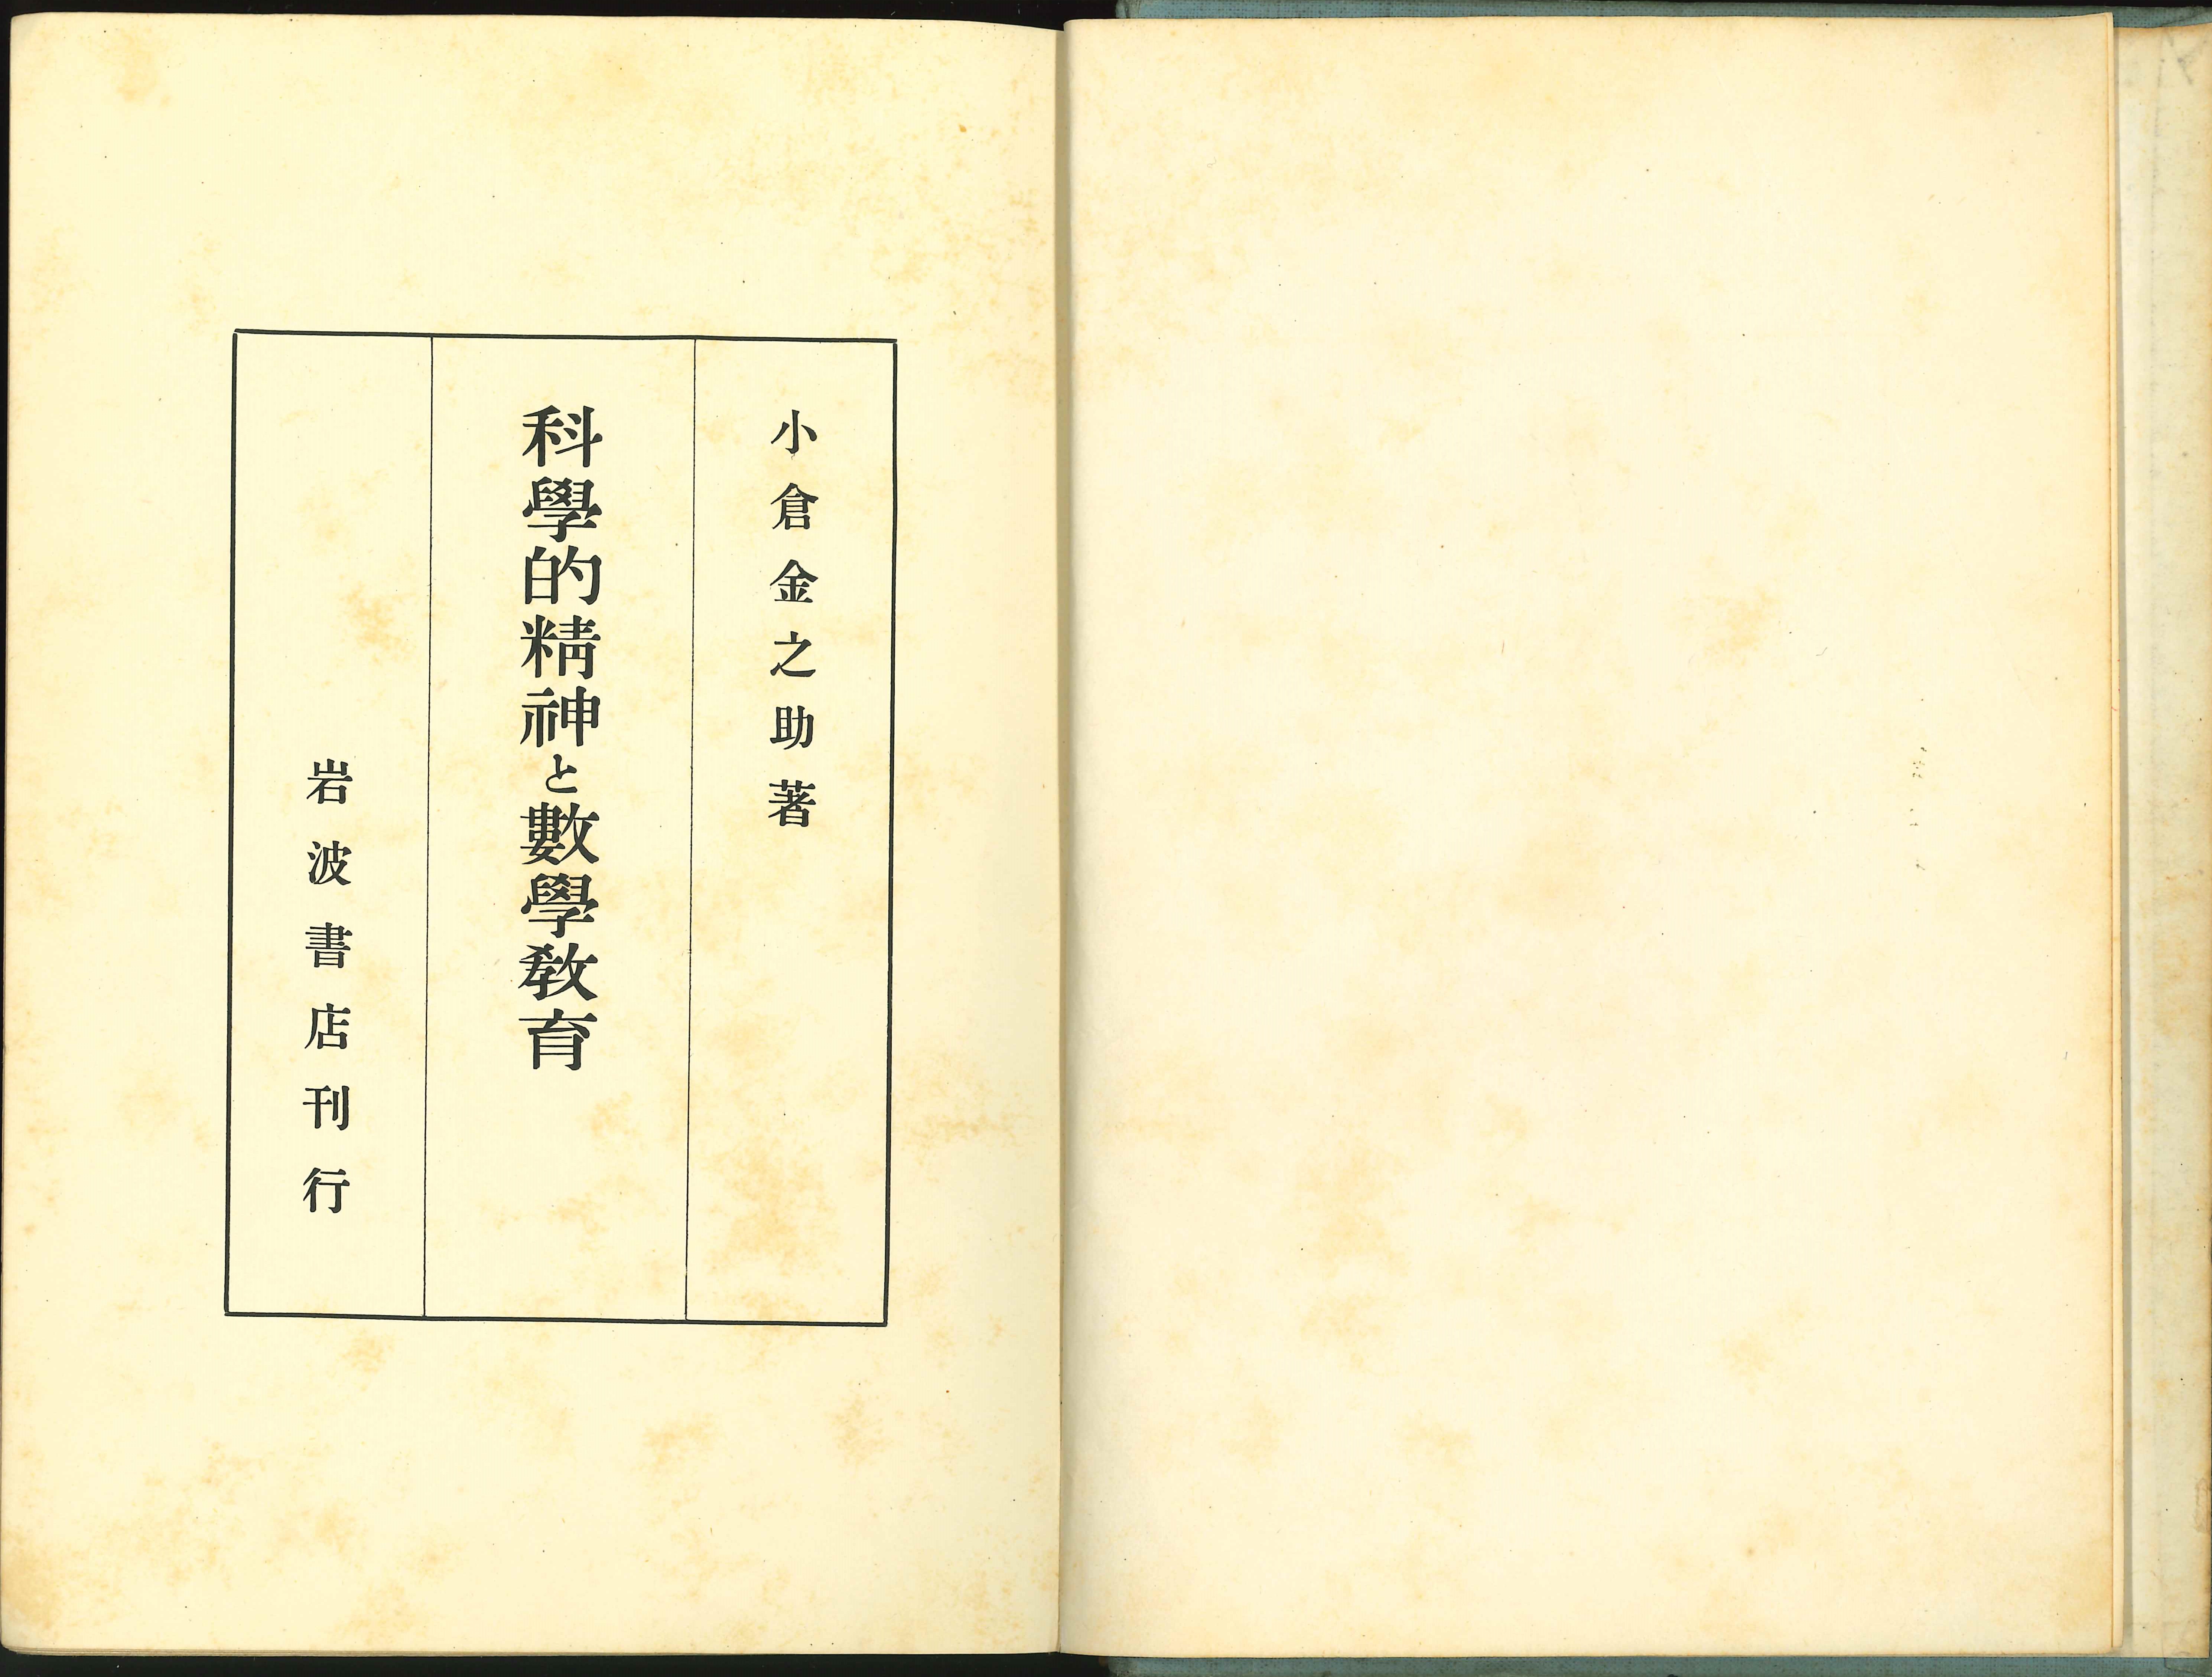 小倉金之助著
科學的精神と數學教育
岩波書店刊行